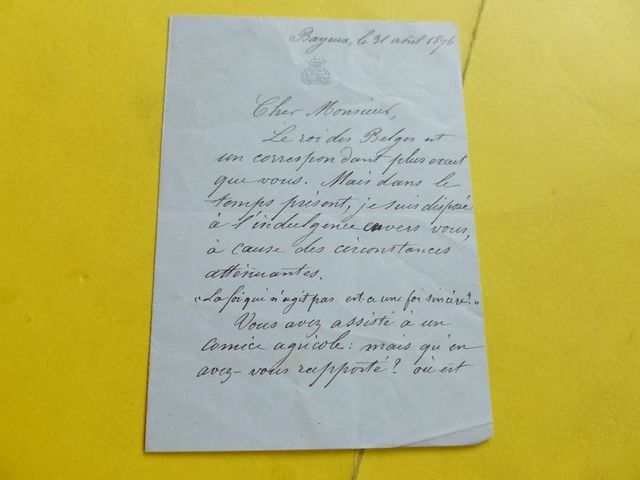 Bayeux, le 31 août 1876
Cher Monsieur,
Le roi des Belges est
un correspondant plus exact
que vous. Mais dans le
temps présent, je suis disposé
à l'indulgence envers vous,
à cause des circonstances
atténuantes.
"La foi qui n'agit pas est-ce une foi sincère?"
Vous avez assisté à un
comice agricole: mais qu'en
avez-vous rapporté? où est